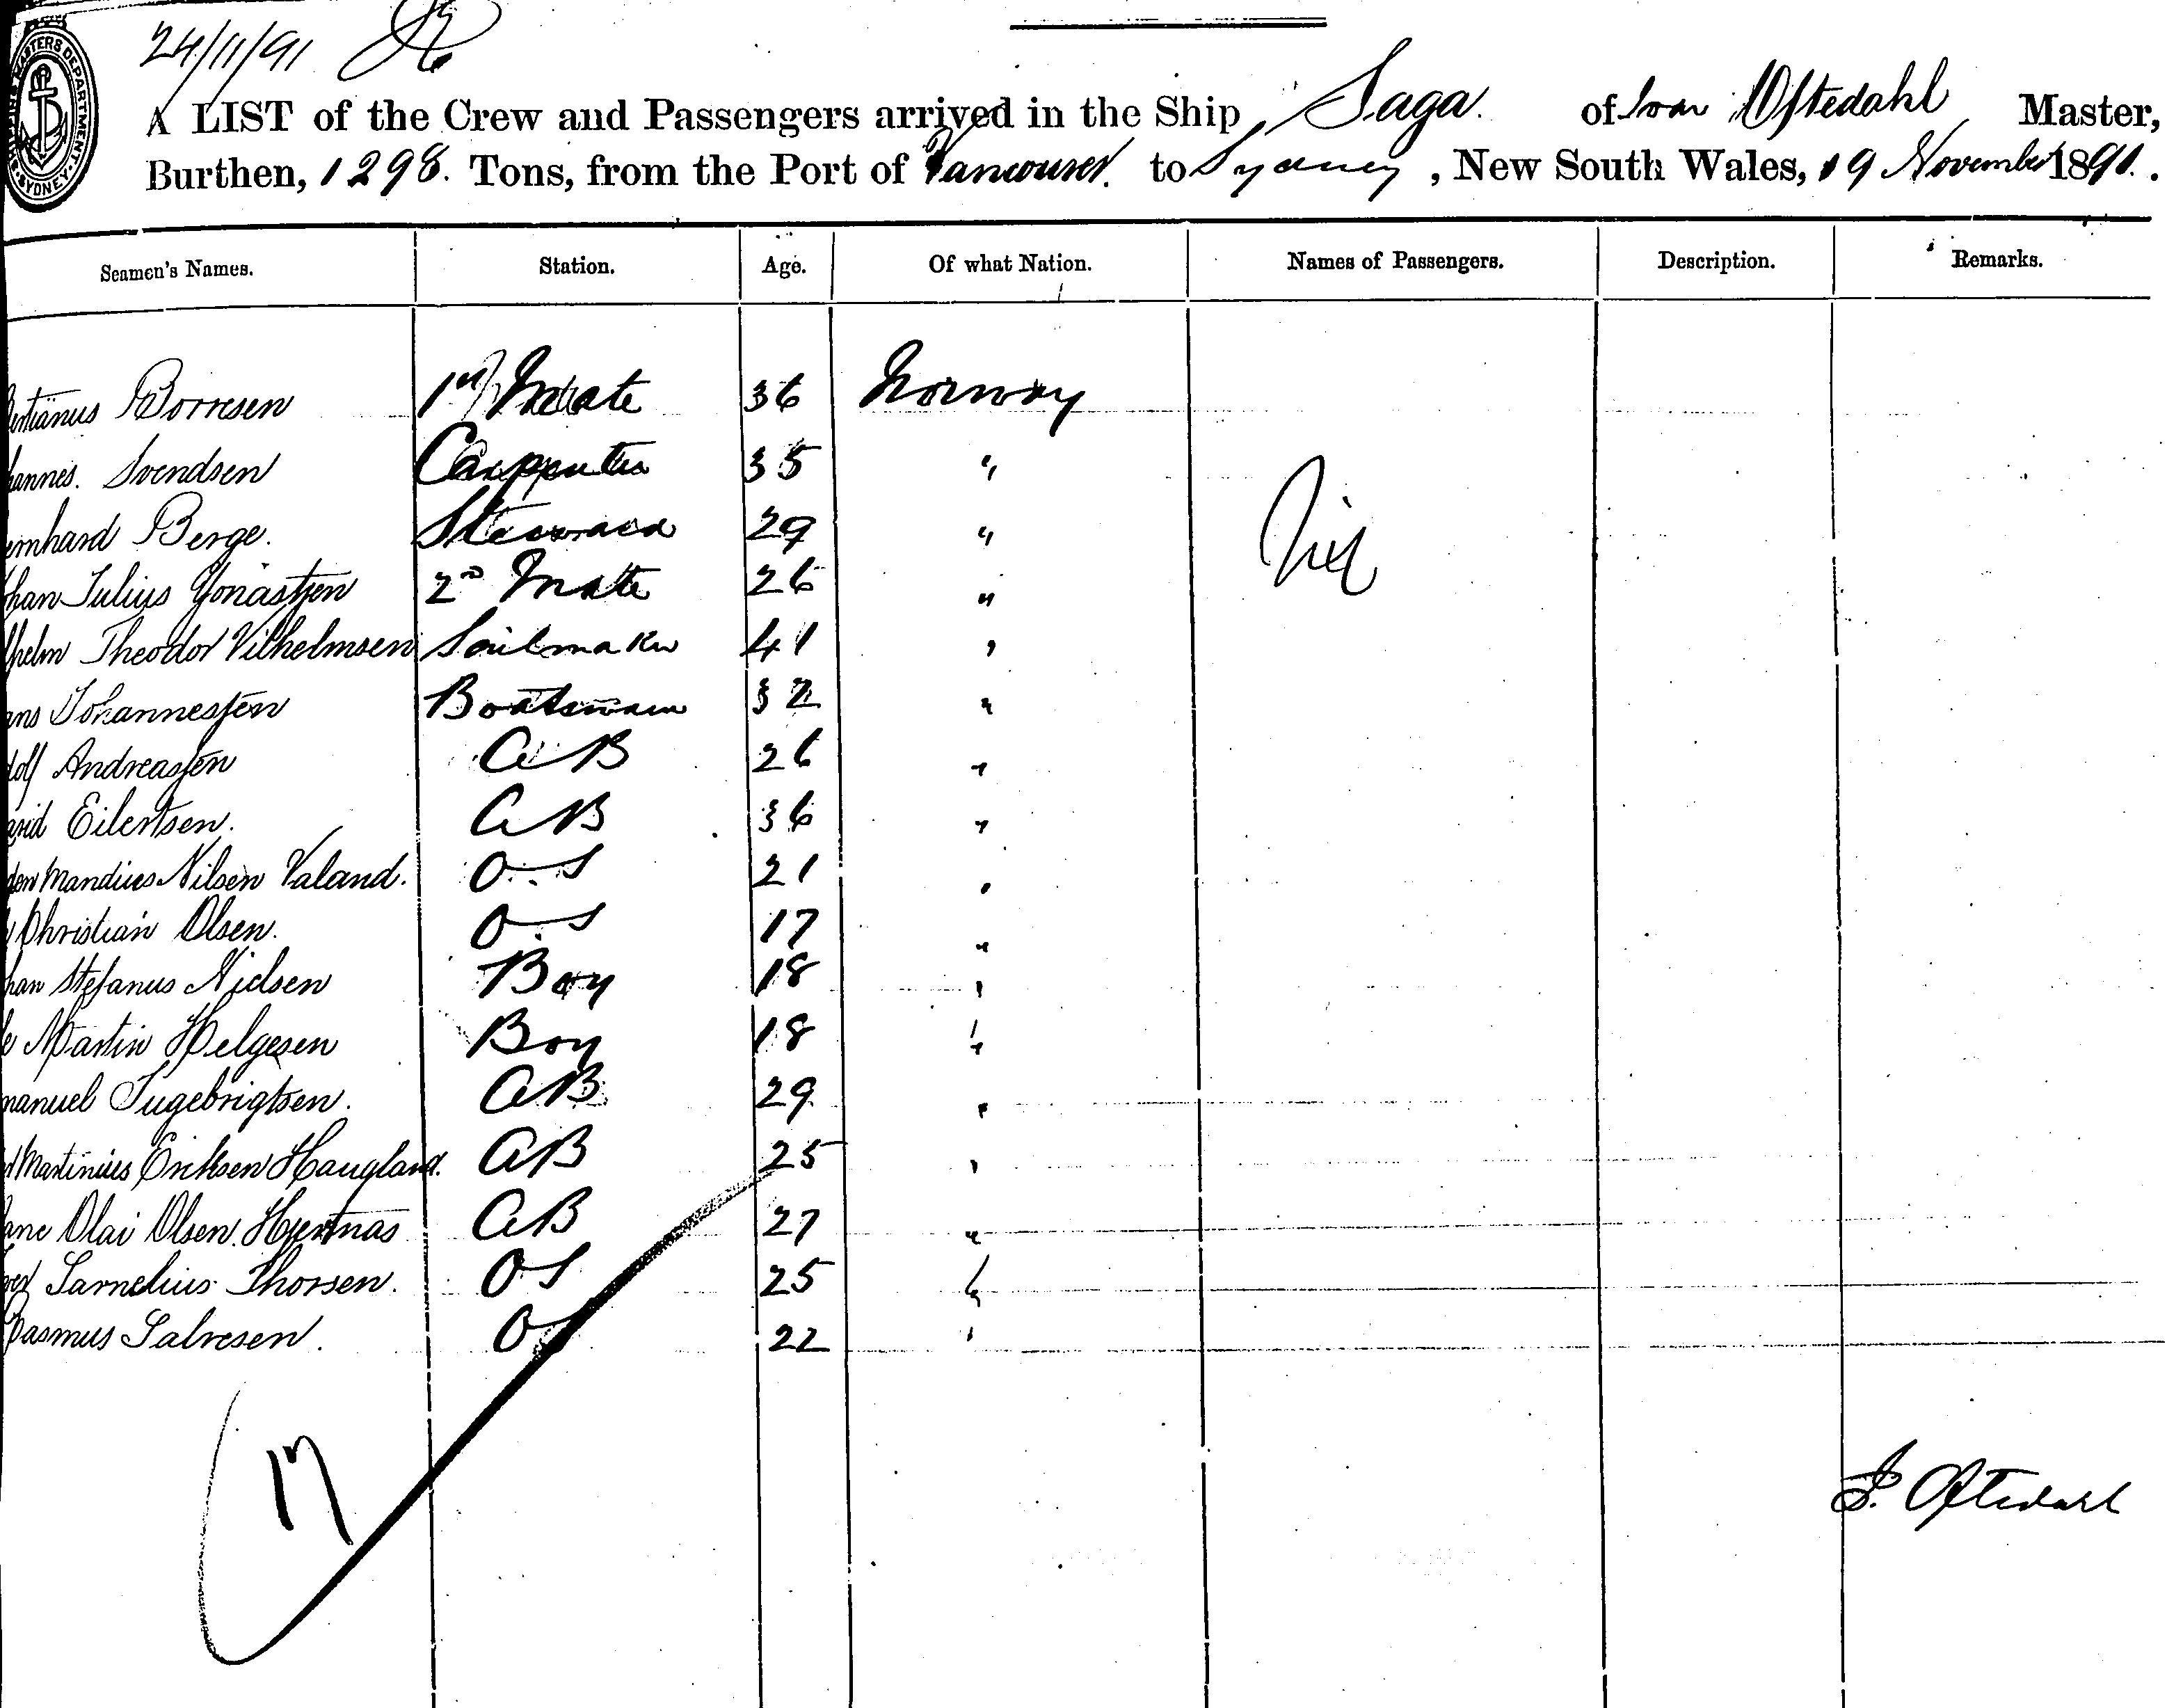 24/11/91
MASTERS DEPARTMENT. SYDNEY.
A LIST of the Crew and Passengers arrived in the Ship Saga. of Ivar Oftedahl Master,
Burthen, 1298. Tons, from the Port of Vancouver. to Sydney, New South Wales, 19 November 1891.
Seamen's Names. Station. Age. Of what Nation. Names of Passengers. Description. Remarks.
Borresen 1st Mate 36 Norway
hannes. Svendsen Carpenter 35 "
ernhard Berge. Steward 29 "
than Julius Jonassen 2nd Mate 26 "
lhelm Theodor Vilhelmsen Sailmaker 41 "
ans Johannessen Boatswain 32 "
dolf Andreassen AB 26 "
avid Eilertsen. AB 36 "
Mandius Nilsen Valand. OS 21 "
Christian Olsen. OS 17 "
han Stefanus Nielsen Boy 18 "
Martin Helgesen Boy 18 "
manuel Ingebrigtsen. AB 29 "
Martinius Eriksen Haugland. AB 25 "
Olai Olsen Hjertnas AB 27 "
Thorsen. OS 25 "
Rasmus Salvesen. OS 22 "
Nil
17
I. Oftedahl